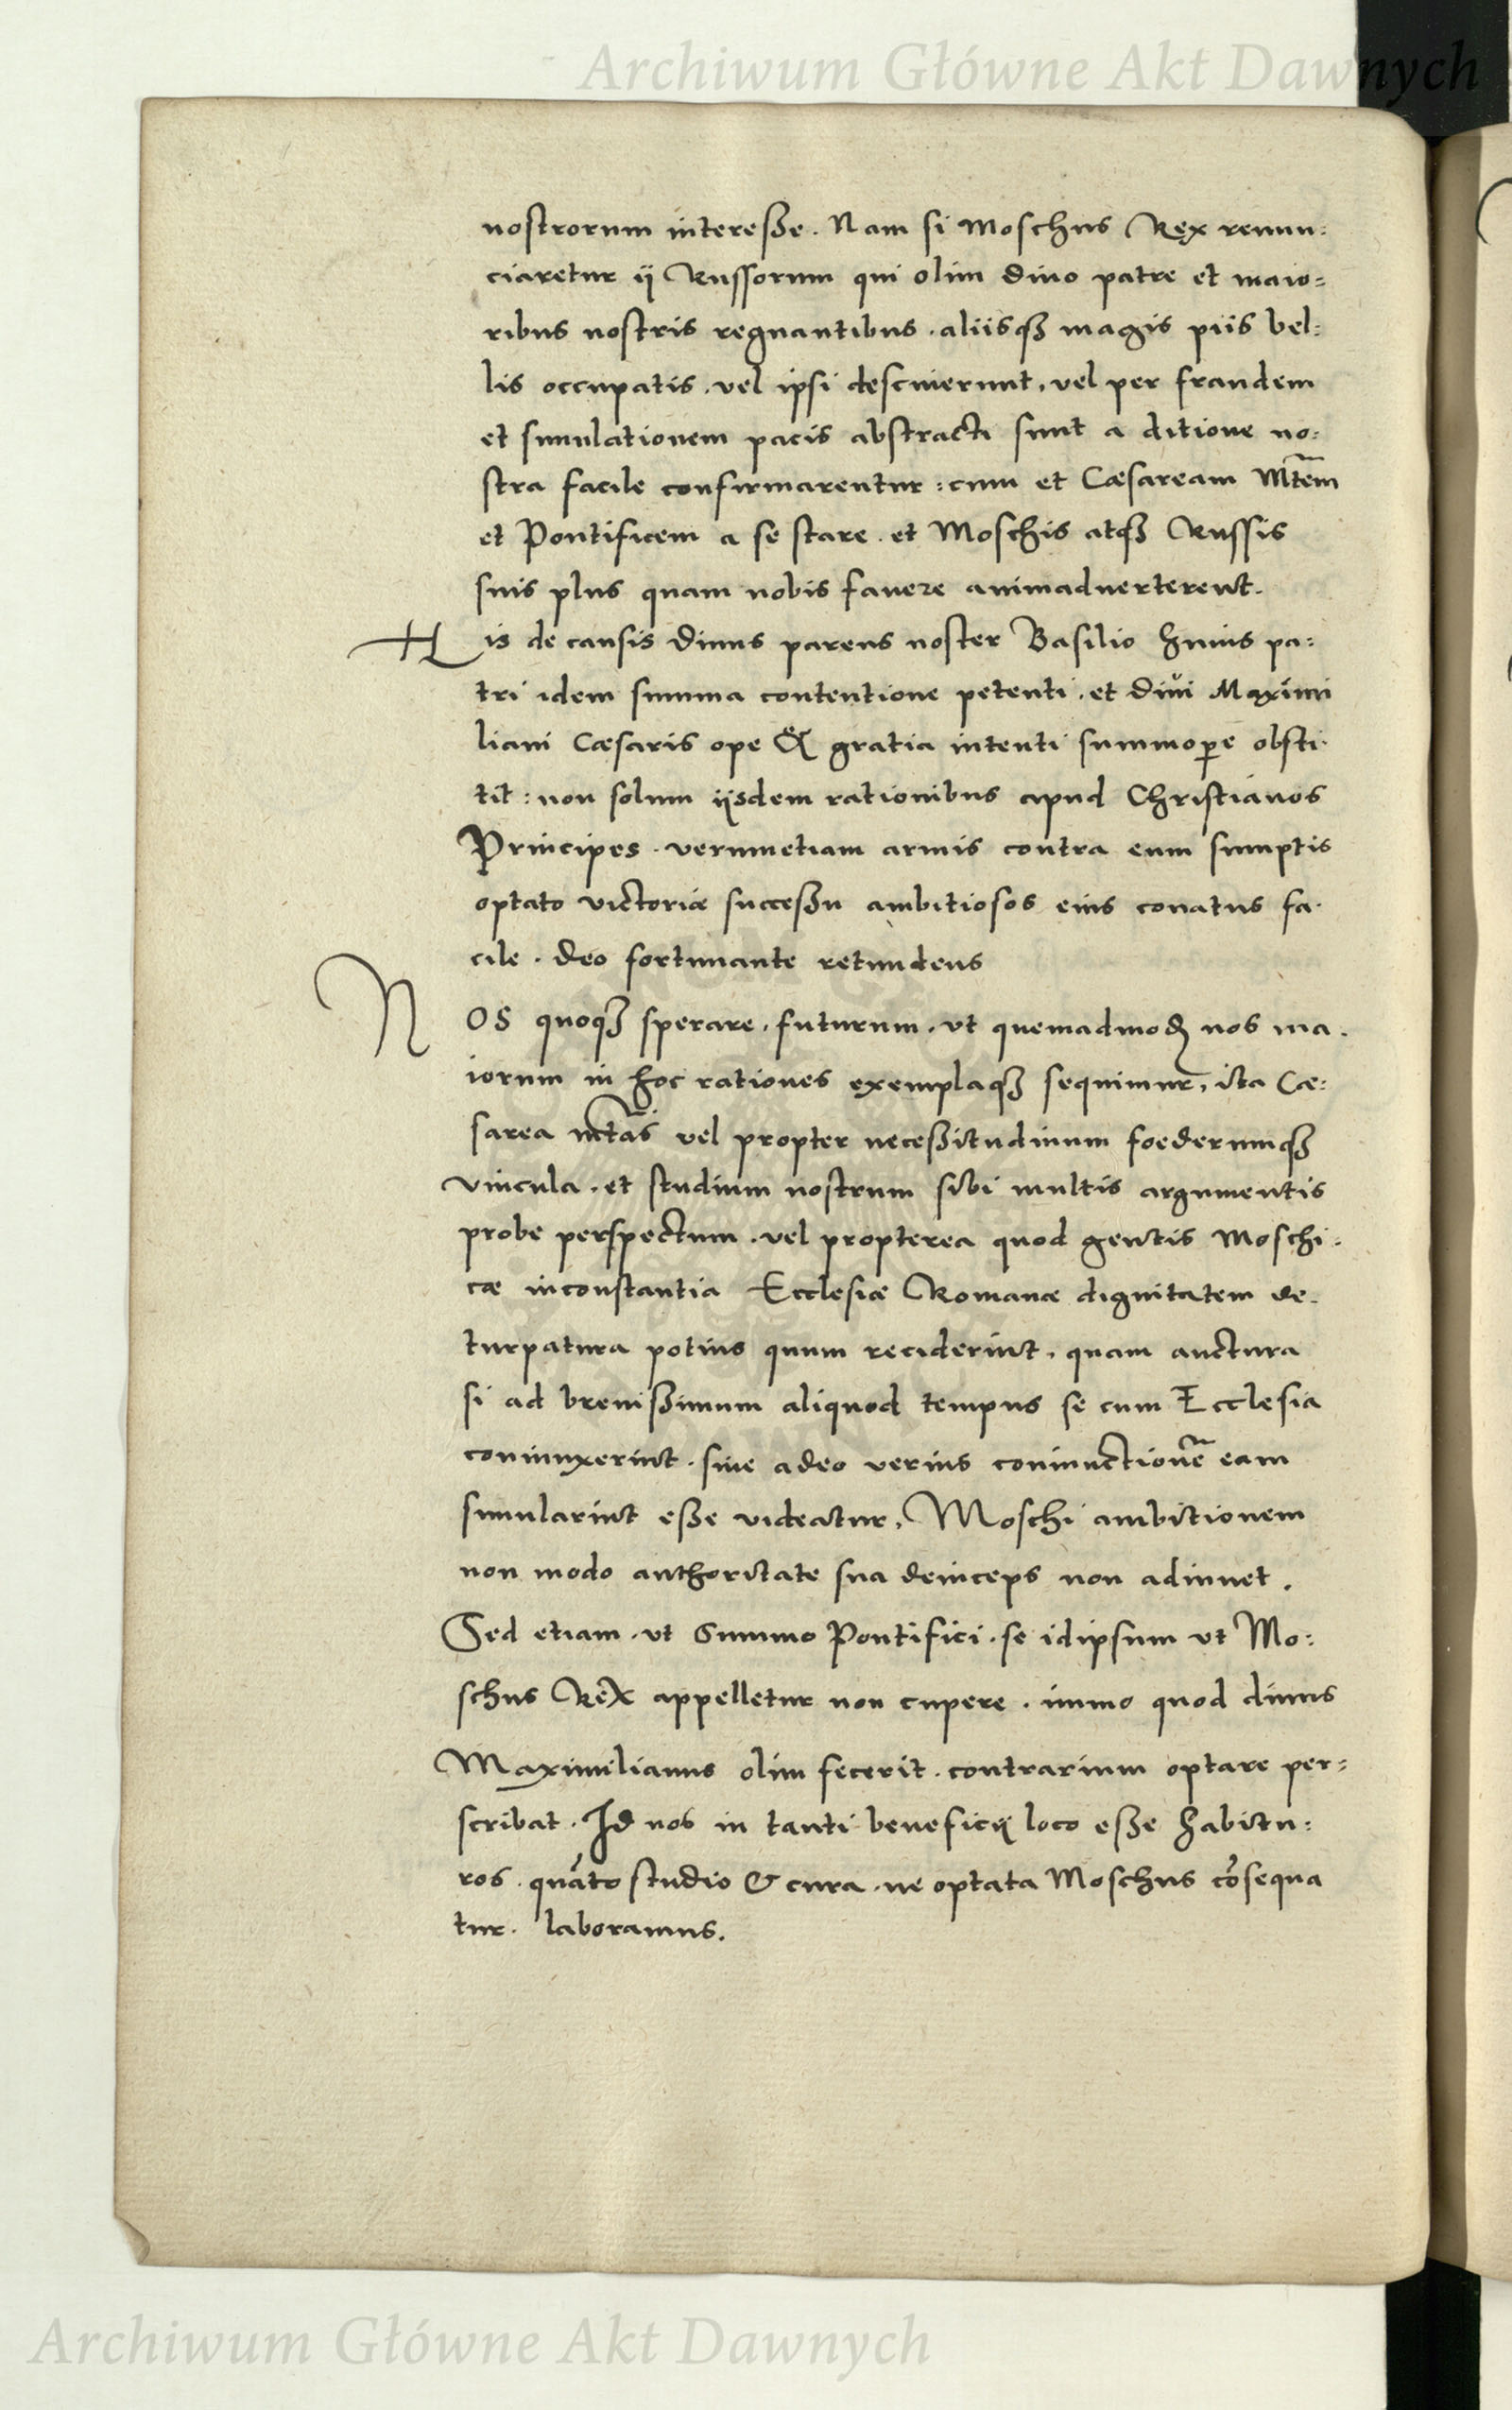 Archiwum Główne Akt Dawnych
nostrorum interesse. Nam si Moschus Rex renun:
ciaretur ij Russorum qui olim diuo patre et maio=
ribus nostris regnantibus. aliisqȝ magis piis bel:
lis occupatis. vel ipsi desciuerunt, vel per fraudem
et simulationem pacis abstracti sunt a ditione no:
stra facile confirmarentur: cum et Cæsaream Mt̄em
et Pontificem a se stare. et Moschis atqȝ Russis
suis plus quam nobis fauere animaduerterent.
His de causis Diuus parens noster Basilio huius pa:
tri idem summa contentione petenti. et diui Maximi
liani Cæsaris ope & gratia intenti summoꝑe obsti.
tit: non solum ijsdem rationibus apud Christianos
Principes. verumetiam armis contra eum sumptis
optato victoriæ successu ambitiosos eius conatus fa.
cile. deo fortunante retundens
NOS quoqȝ sperare, futurum. vt quemadmodȝ nos ma.
iorum in hoc rationes exemplaqȝ sequimur, ita Cæ:
sarea mt̄as vel propter necessitudinum foederumqȝ
vincula. et studium nostrum sibi multis argumentis
probe perspectum. vel propterea quod gentis Moschi.
cæ inconstantia Ecclesiæ Romanæ dignitatem de.
turpatura potius quum reciderint, quam auctura
si ad breuissimum aliquod tempus se cum Ecclesia
coniunxerint. siue adeo verius coniunctionē eam
simularint esse videatur, Moschi ambitionem
non modo authoritate sua deinceps non adiuuet.
Sed etiam. vt Summo Pontifici. se idipsum vt Mo:
schus Rex appelletur non cupere. immo quod diuus
Maximilianus olim fecerit. contrarium optare per=
scribat. Id nos in tanti beneficij loco esse habitu:
ros. quāto studio & cura. ne optata Moschus cōsequa
tur. laboramus.
Archiwum Główne Akt Dawnych